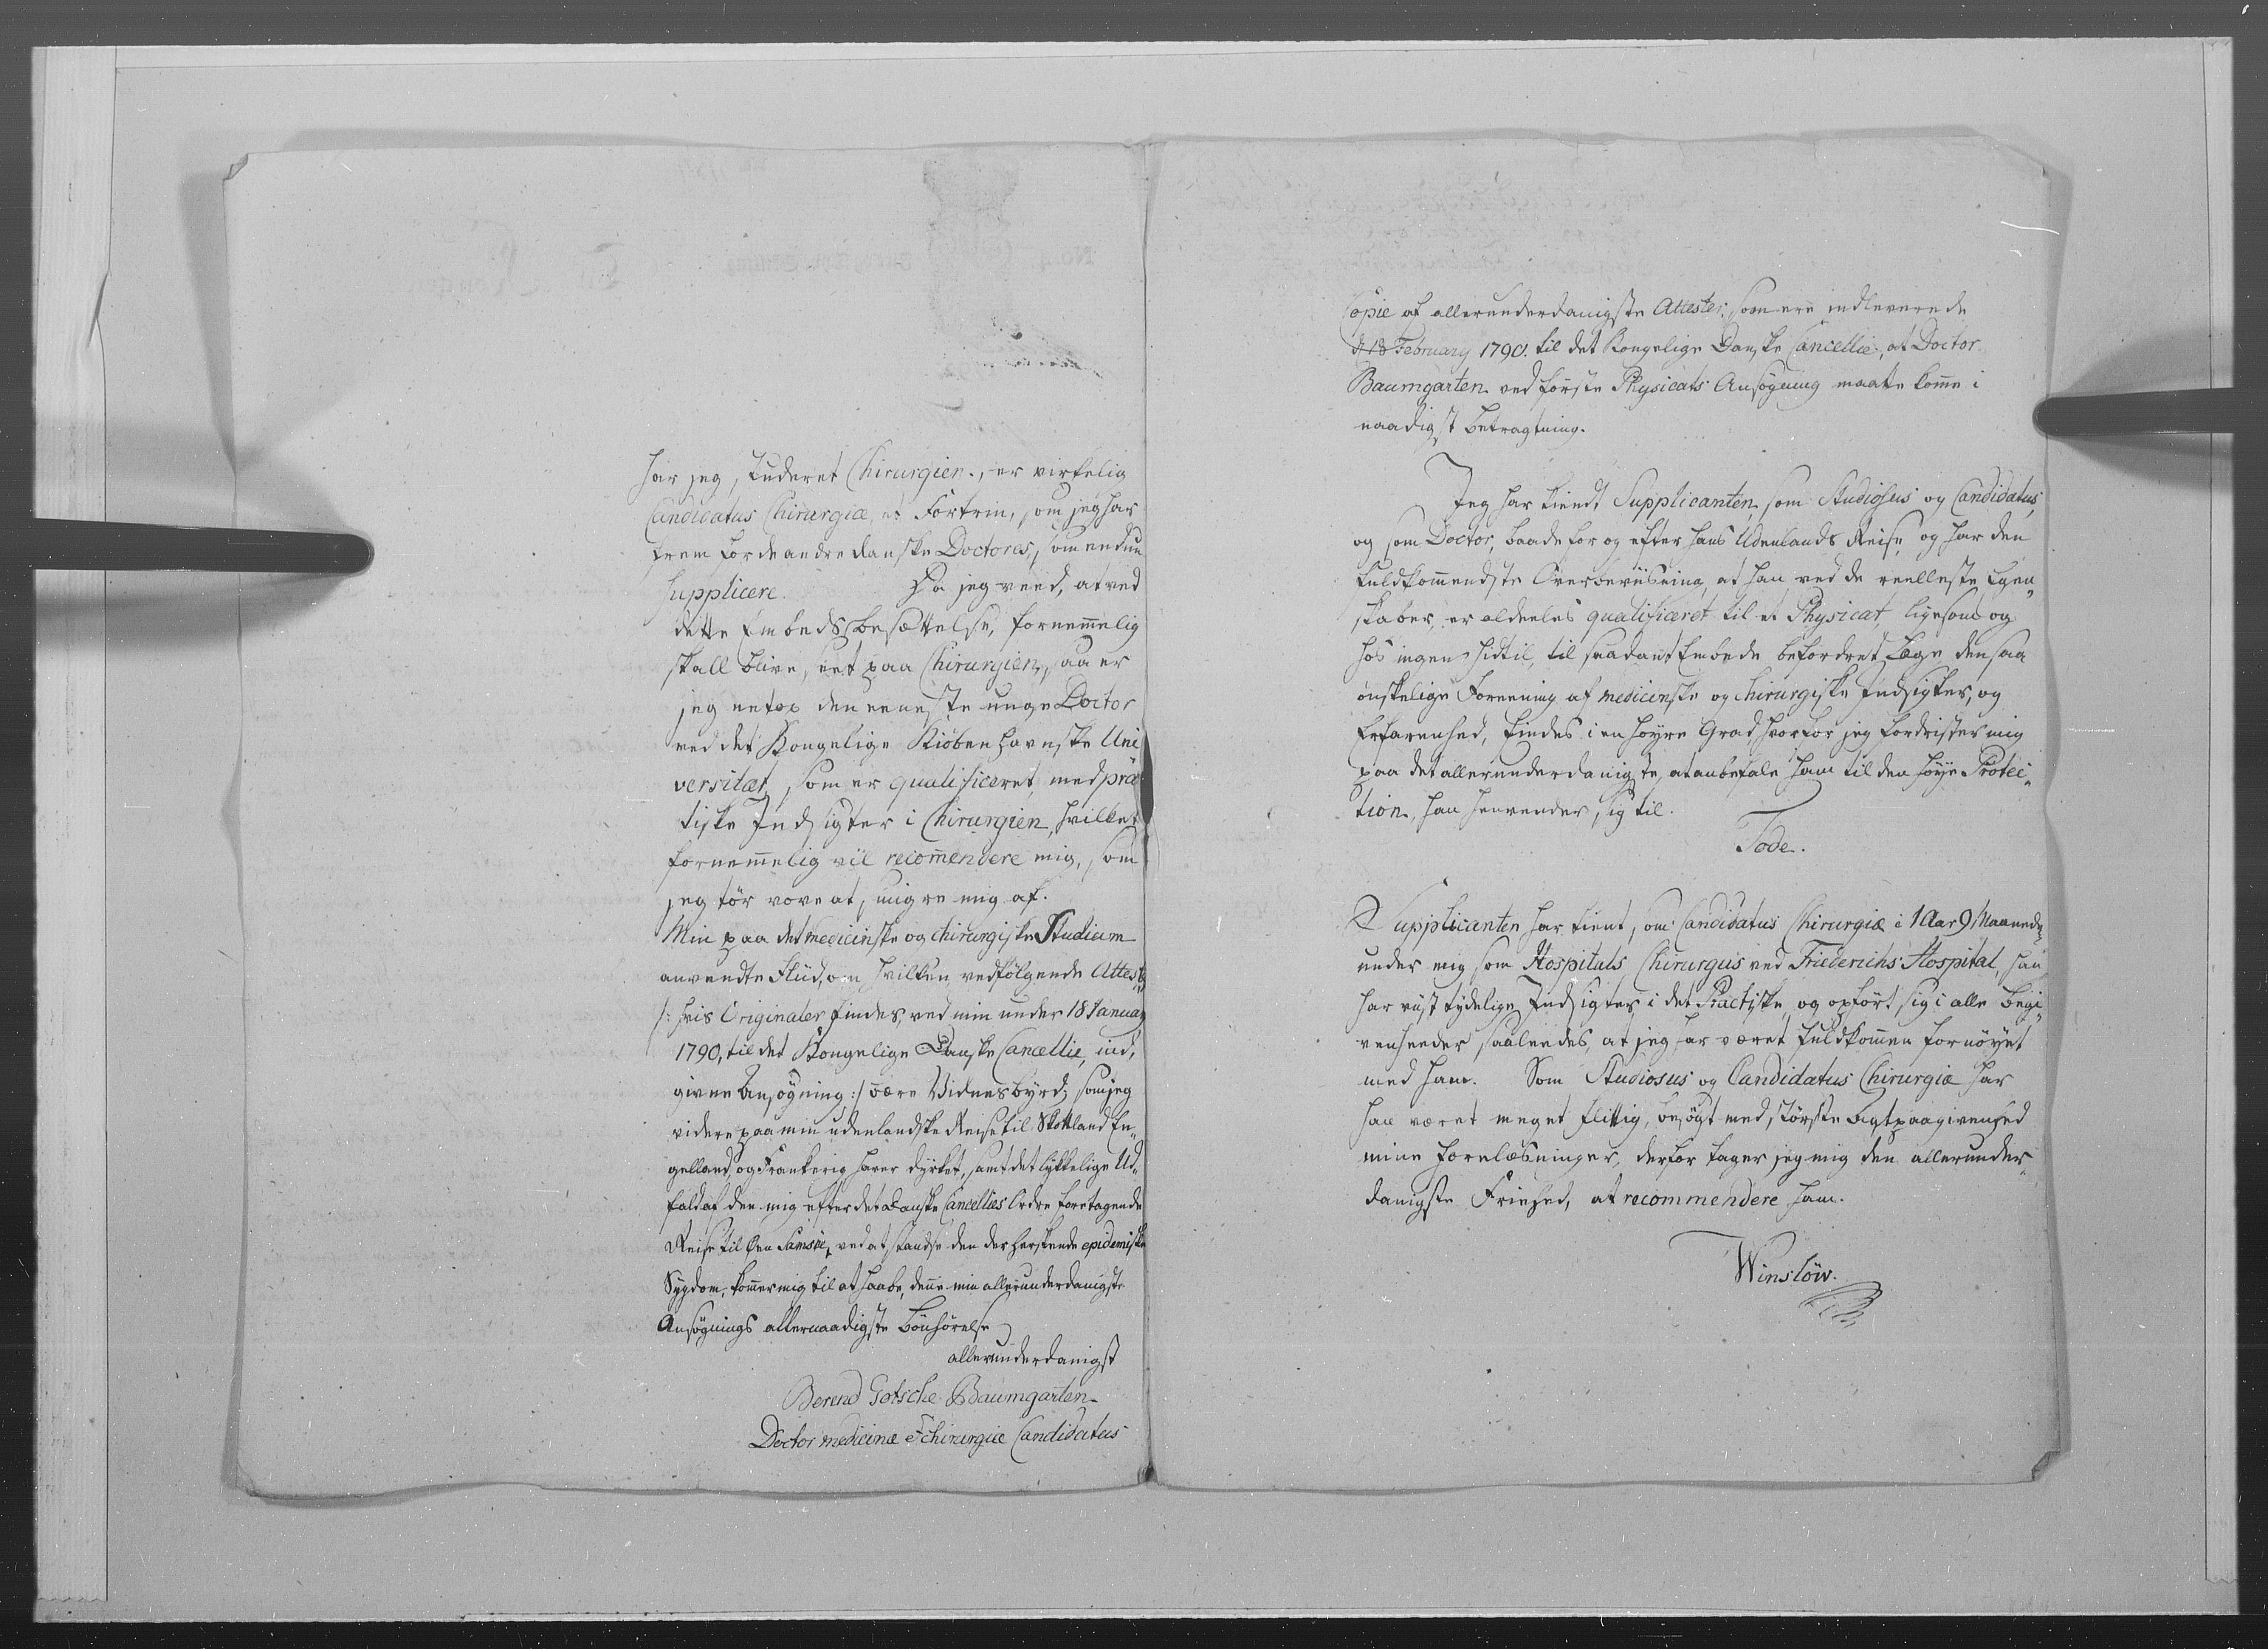 har jeg studeret Chirurgien, er virkelig
Candidatus Chirurgiæ, et Fortrin, som jeg har
frem for de andre danske Doctores, som endnu
supplicere. Da jeg veed, at ved
dette Embeds besættelse, fornemmelig
skall blive seet paa Chirurgien, saa er
jeg netop den eeneste unge Doctor
ved det Kongelige Kiøbenhavnske Uni
versitæt, som er qualificeret med prac
tiske Indsigter i Chirurgien, hvilket
fornem̅elig vil recom̅endere mig, som
jeg tör vove at smigre mig af.
Min paa det medicinske og chirurgiske Studium
anvendte Fliid, om hvilken vedfölgende Attester
/: hvis Originaler findes, ved min under 18 Januarÿ
1790, til det Kongelige Danske Cancellie, ind,
givne Ansøgning :/ være Vidnesbyrd, som jeg
videre paa min udenlandske Reise til Skottland En„
gelland, og Frankerig haver dyrket, samt det lykkelige Ud„
fald af den mig efter det Danske Cancellies Ordre foretagende
Reise til Øen Samsöe, ved at standse den der herskende epidemiske
Sygdom, kom̅er mig til at haabe, denne min allerunderdanigste
Ansøgnings allernaadigste Bönhörelse
allerunderdanigst
Berend Gotsche Baumgarten
Doctor medicinæ & chirurgiæ Candidatus
Copie af allerunderdanigste Attester, som ere indleverede
d 18 February 1790. til det Kongelige Danske Cancellie, at Doctor
Baumgarten ved förste Physicats Ansøgning maatte kom̅e i
naadigst Betragtning.
Jeg har kiendt Supplicanten, som Studiosus og Candidatus,
og som Doctor, baade for og efter hans Udenlands Reise, og har den
fuldkom̅enste Overbeviisning, at han ved de reelleste Egen„
skaber, er aldeeles qualificeret til et Physicat, ligesom og
hos ingen hidtil, til saadant Embede befordret Læge den saa
önskelige Foreening af medicinske og chirurgiske Indsigter, og
Erfarenhed, findes i en höyere Grad, hvorfor jeg fordrister mig
paa det allerunderdanigste, at anbefale ham til den höye Protec„
tion, han henvender sig til.
Tode.
Supplicanten har tient, som Candidatus Chirurgiæ i 1 Aar 9 Maaneder
under mig som Hospitals Chirurgus ved Friederichs Hospital, han
har viist tydelige Indsigter i det Practiske, og opfört sig i alle Begi„
venheeder saaleedes, at jeg har været fuldkommen fornöyet
med ham. Som Studiosus og Candidatus Chirurgiæ har
han været meget flittig, besögt med störste Agtpaagivenhed
mine Forelæsninger, derfor tager jeg mig den allerunder„
danigste Friehed, at recommendere ham.
Winslöw.